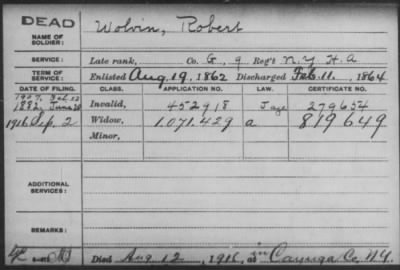 DEAD
Wolvin, Robert
NAME OF SOLDIER:
SERVICE: Late rank, Co. G, 9 Reg't N.Y. H.A
TERM OF SERVICE: Enlisted Aug. 19, 1862 Discharged Feb. 11, 1864
DATE OF FILING. CLASS. APPLICATION NO. LAW. CERTIFICATE NO.
1907, Feb. 12
1882, June 20 Invalid, 452918 279654
1916 Sep. 2 Widow, 1.071.429 a 819649
Minor,
ADDITIONAL SERVICES:
REMARKS:
Died Aug 12, 1916, at in Cayuga Co. N.Y.